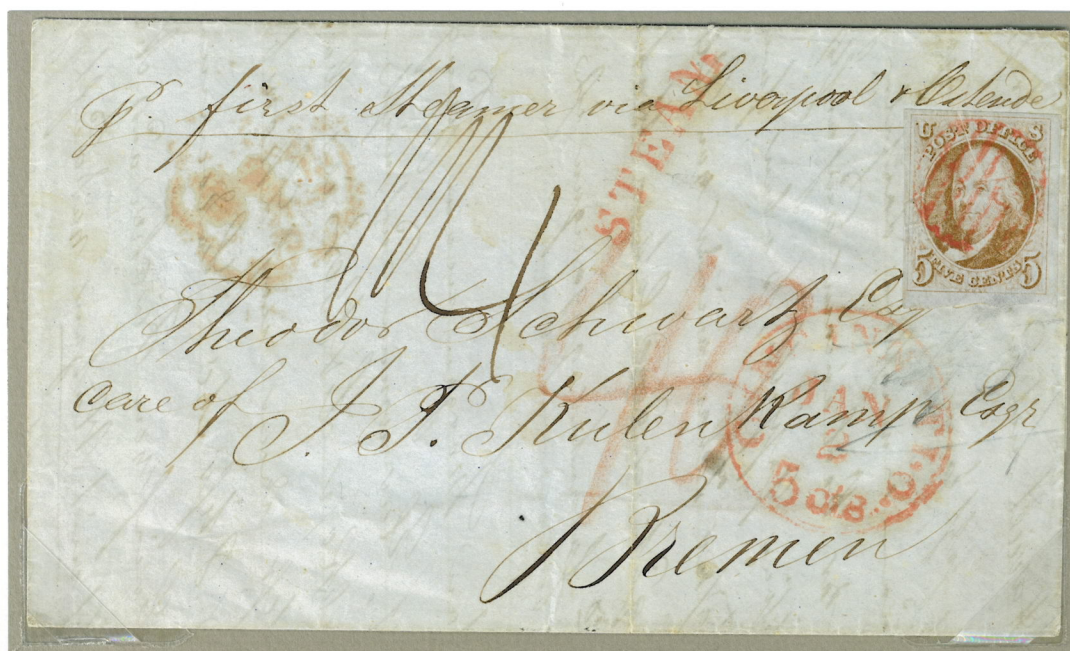 p. first Steamer via Liverpool & Ostende
STEAM
U S
POST OFFICE
FIVE CENTS
5 5
Theodor Schwartz Esq
care of J. F. Kulen Kamp Esqr
Bremen
JAN
2
5 cts.